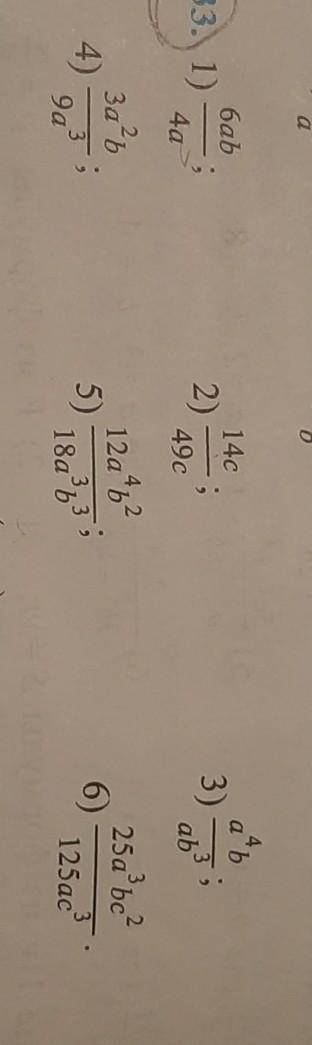 a b
33. 1) 6ab/4a; 2) 14c/49c; 3) a⁴b/ab³;
4) 3a²b/9a³; 5) 12a⁴b²/18a³b³; 6) 25a³bc²/125ac³.